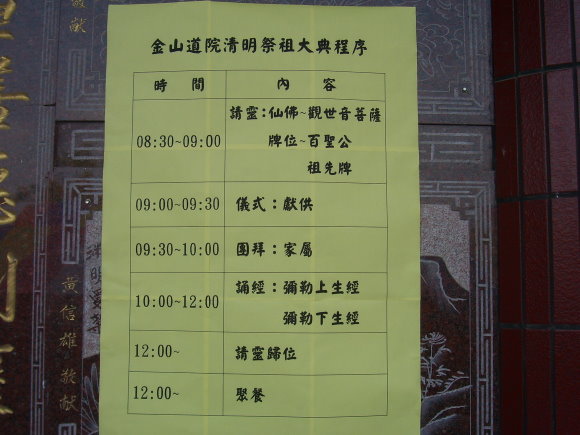 金山道院清明祭祖大典程序
時 間 內 容
08:30~09:00 請靈：仙佛~觀世音菩薩
牌位~百聖公
祖先牌
09:00~09:30 儀式：獻供
09:30~10:00 團拜：家屬
10:00~12:00 誦經：彌勒上生經
彌勒下生經
12:00~ 請靈歸位
12:00~ 聚餐
黃信雄敬献
敬献